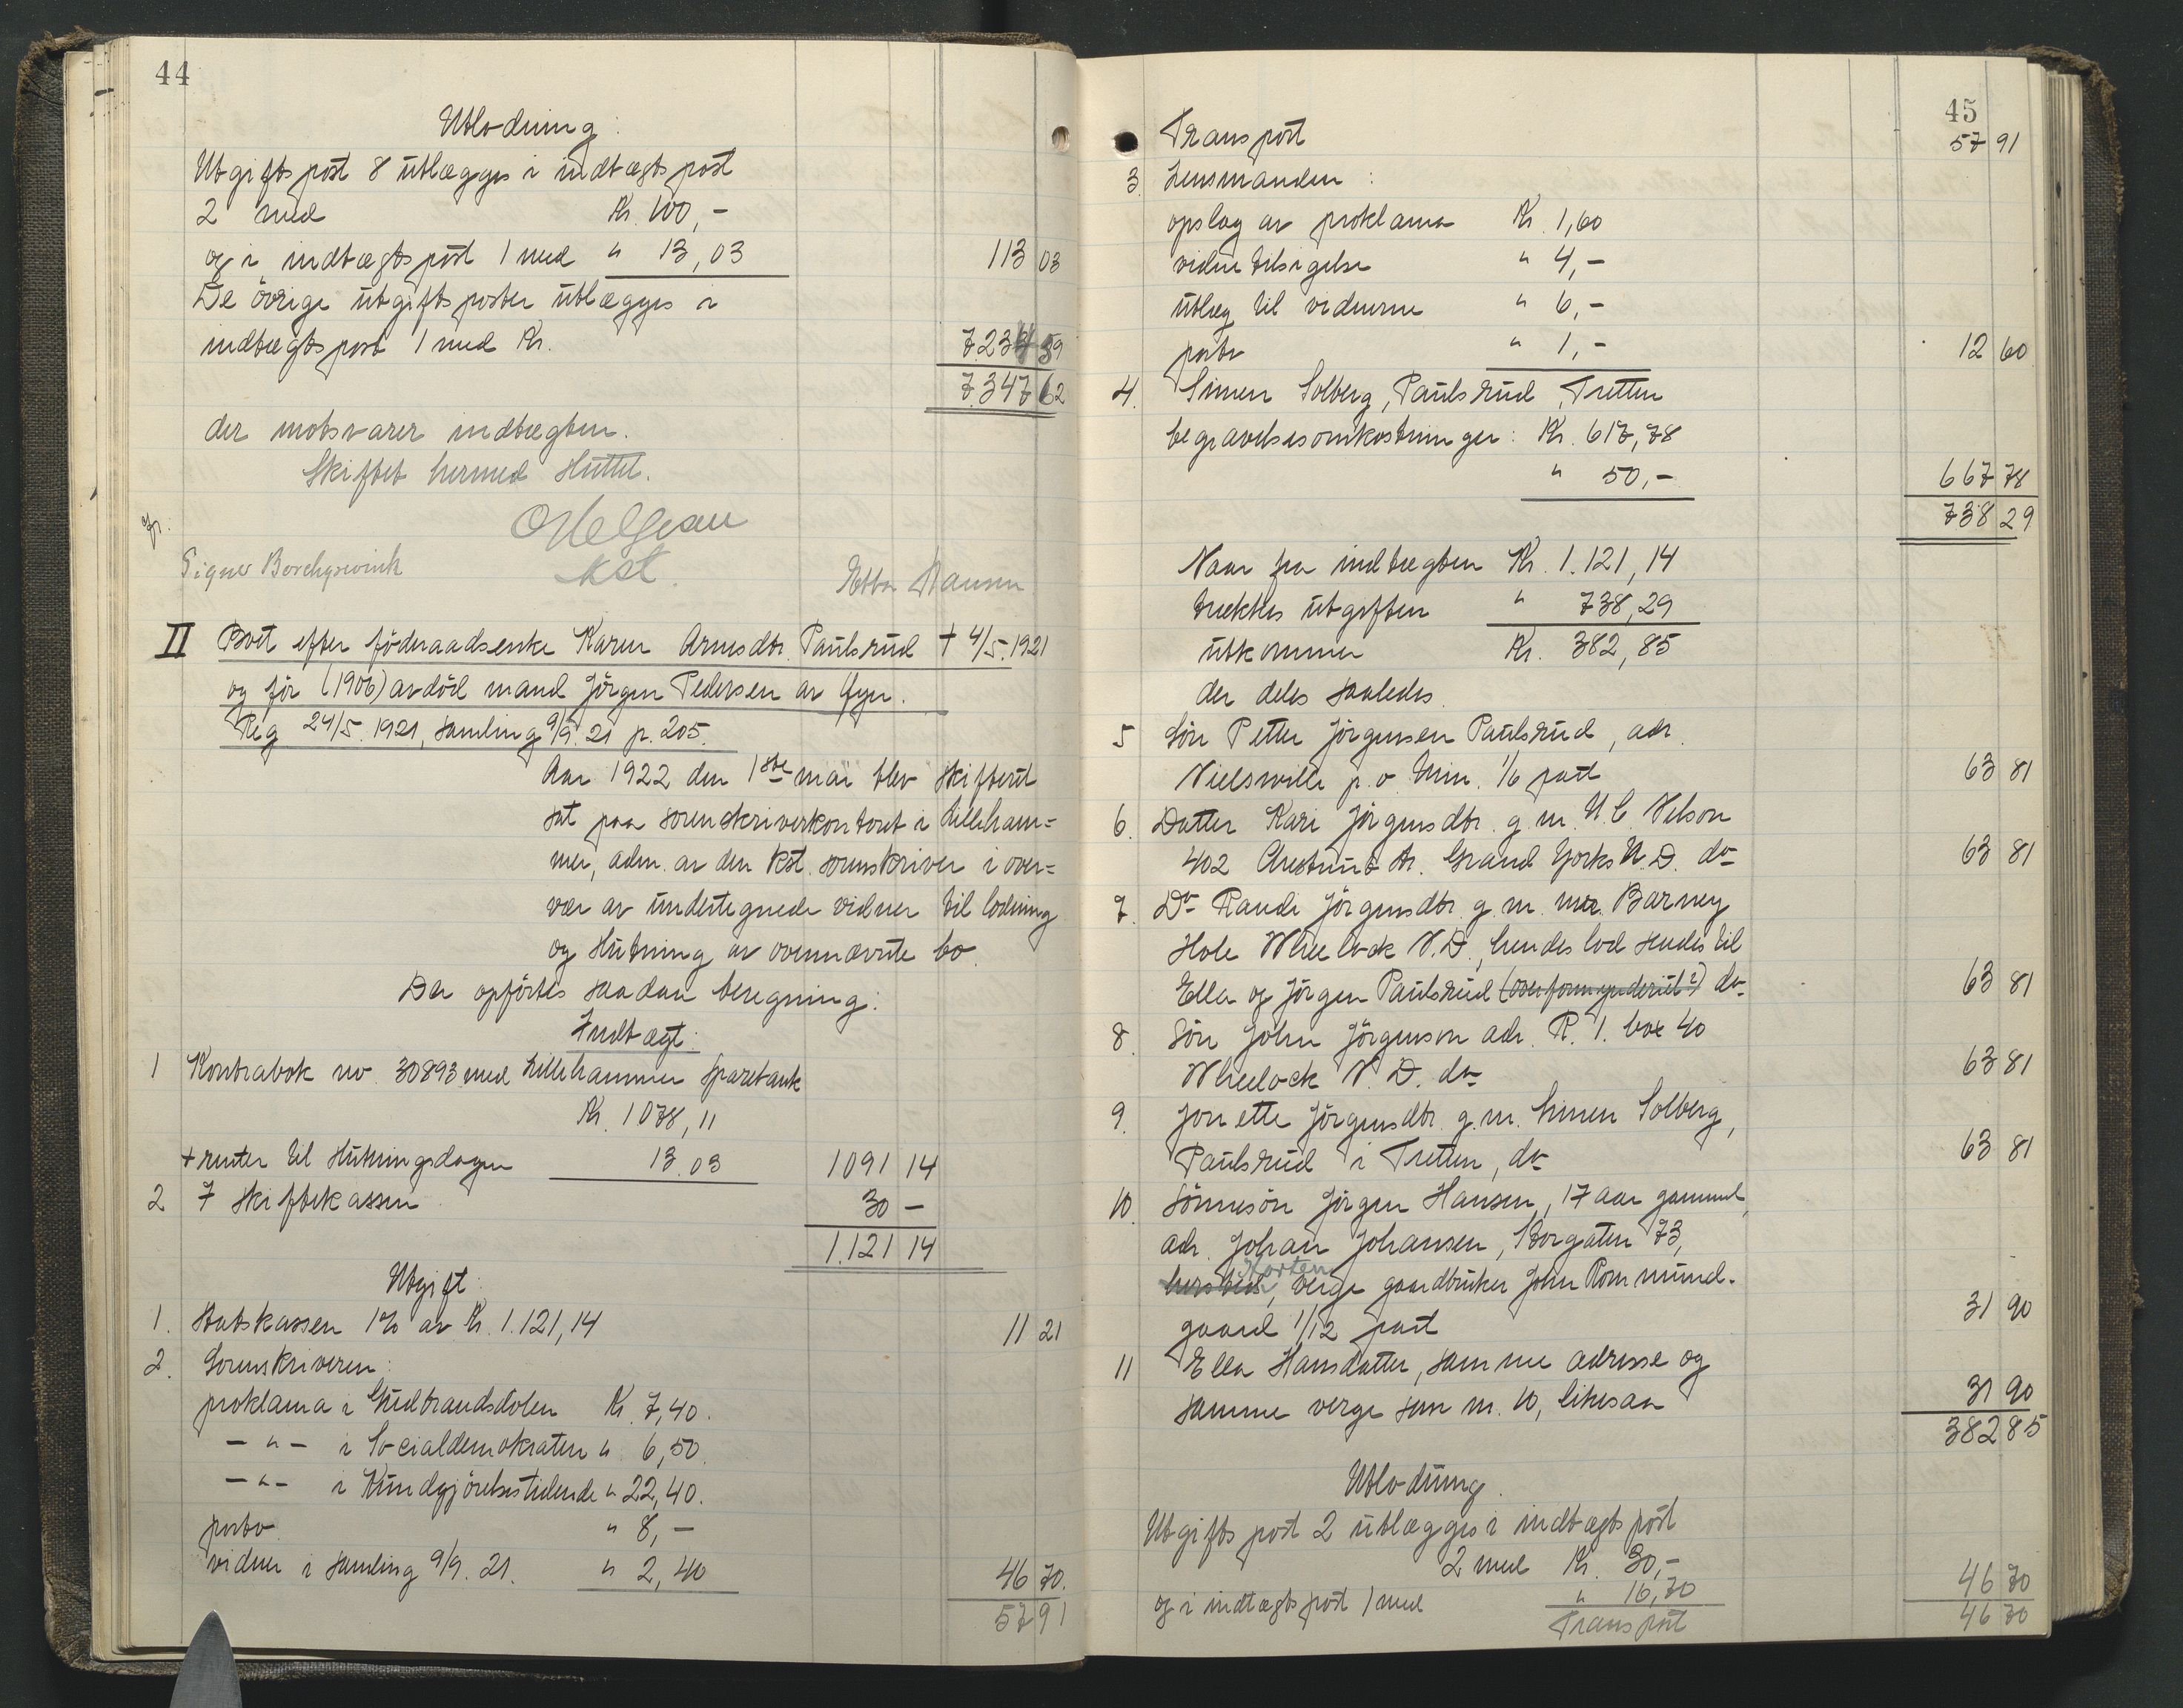 44
Utlodning:
Utgiftspost 8 utlægges i indtægtspost
2 med Kr. 100,-
og i indtægtspost 1 med " 13,03 113 03
De övrige utgiftsposter utlægges i
indtægtspost 1 med Kr. 7.234 59
7.347 62
der motsvarer indtægten.
Skiftet hermed sluttet.
kst.
Signe Borchgrevink Ebba Hansen
II Boet efter föderaadsenke Karen Arnesdtr. Paulsrud + 4/5.1921
og för (1906) avdöd mand Jörgen Pedersen av Øyer.
Reg 24/5.1921, samling 9/9.21 p. 205.
Aar 1922 den 1ste mai blev skifteret
sat paa sorenskriverkontoret i Lilleham=
mer, adm. av den kst. sorenskriver i over=
vær av undertegnede vidner til lodning
og slutning av ovennævnte bo.
Der opförtes saadan beregning:
Indtægt:
1 Kontrabok no 30893 med Lillehammer Sparebank
Kr. 1078,11
+ renter til slutningsdagen 13.03 1091 14
2 I skiftekassen 30 -
1.121 14
Utgift:
1. Statskassen 1% av Kr. 1.121,14 11 21
2. Sorenskriveren:
proklama i Gudbrandsdølen Kr. 7,40.
- " - i Socialdemokraten " 6,50.
- " - i Kundgjörelsestidende " 22,40.
porto " 8,-
vidner i samling 9/9.21. " 2,40 46 70.
57 91
45
Transport 57 91
3 Lensmanden:
opslag av proklama Kr. 1,60
vidnetilsigelse " 4,-
utlæg til vidnerne " 6,-
porto " 1,- 12 60
4. Simen Solberg, Paulsrud, Tretten
begravelsesomkostninger: Kr. 617,78
" 50,- 667 78
738 29
Naar fra indtægten Kr. 1.121,14
trækkes utgiften " 738,29
utkommer Kr. 382,85
der deles saaledes.
5 Sön Petter Jörgensen Paulsrud, adr.
Nielsville p.o. Minn. 1/6 part 63 81
6. Datter Kari Jörgensdtr. g.m. N.C. Nelson
402 Chestnut Str. Grand Forks N.D. do 63 81
7. Do Randi Jörgensdtr. g.m. mr. Barney
Hole Wheelock N.D., hendes lod sendes til
Ella og Jörgen Paulsrud (overformynderiet?) do 63 81
8. Sön John Jörgenson adr. R. 1. box 40
Wheelock N.D. do 63 81
9. Jonette Jörgensdtr. g.m. Simen Solberg,
Paulsrud i Tretten, do 63 81
10. Sönnesön Jörgen Hansen, 17 aar gammel,
adr. Johan Johansen, Storgaten 73,
Horten
hersteds, verge gaardbruker John Rommund-
gaard 1/12 part 31 90
11 Ella Hansdatter, samme adresse og
samme verge som nr. 10, likesaa 31 90
382 85
Utlodning.
Utgiftspost 2 utlægges i indtægtspost
2 med Kr. 30,-
og i indtægtspost 1 med " 16,70 46 70
Transport 46 70